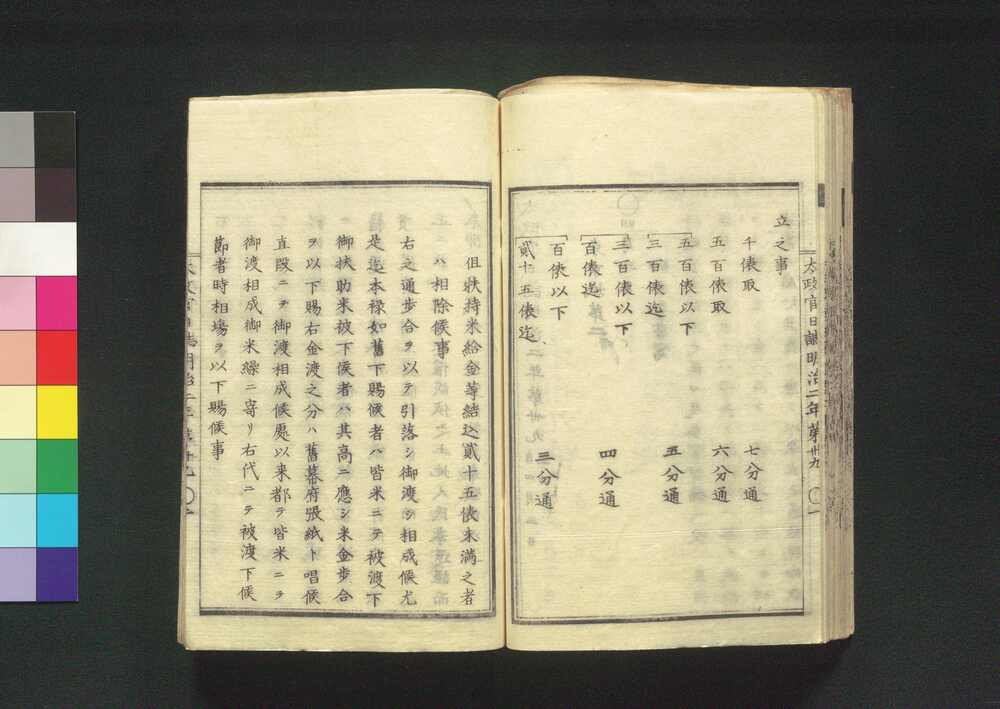 太政官日誌明治二年第卅九
立之事
千俵取 七分通
五百俵取 六分通
五百俵以下
三百俵迄 五分通
三百俵以下
百俵迄 四分通
百俵以下
貳十五俵迄 三分通
但扶持米給金等結込貳十五俵未満之者
ハ相除候事
右之通歩合ヲ以テ引落シ御渡シ相成候尤
是迄本禄如舊下賜候者ハ皆米ニテ被渡下
御扶助米被下候者ハ其高ニ應シ米金歩合
ヲ以下賜右金渡之分ハ舊幕府張紙ト唱候
直段ニテ御渡相成候處以来都テ皆米ニヲ
御渡相成御米繰ニ寄リ右代ニテ被渡下候
節者時相場ヲ以下賜候事